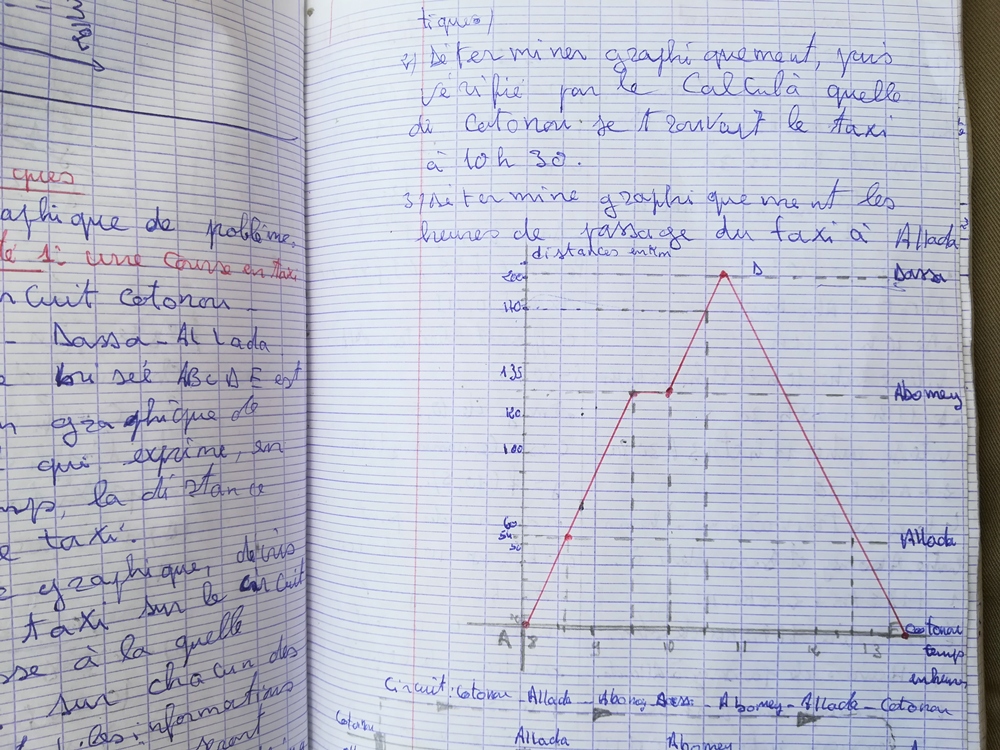 ques
aphique de problème.
té 1: une Course en taxi
cuit cotonou -
- Dassa - Allada
ABCDE est
graphique de
qui exprime, en
la distance
taxi.
graphique, décris
taxi sur le circuit
à la quelle
sur chacun des
les informations
tiques)
2) Déterminer graphiquement, puis
vérifié par le calcul à quelle
di Cotonou se trouvait le taxi
à 10h 30.
3) Détermine graphiquement les
heures de passage du taxi à Allada
distances en km
200 D Dassa
135
Abomey
120
100
60
54 Allada
50
A 8 9 10 11 12 13 E cotonou
temp
en heures
Circuit: Cotonou - Allada - Abomey - Dassa - Abomey - Allada - Cotonou
Cotonou
Allada Abomey